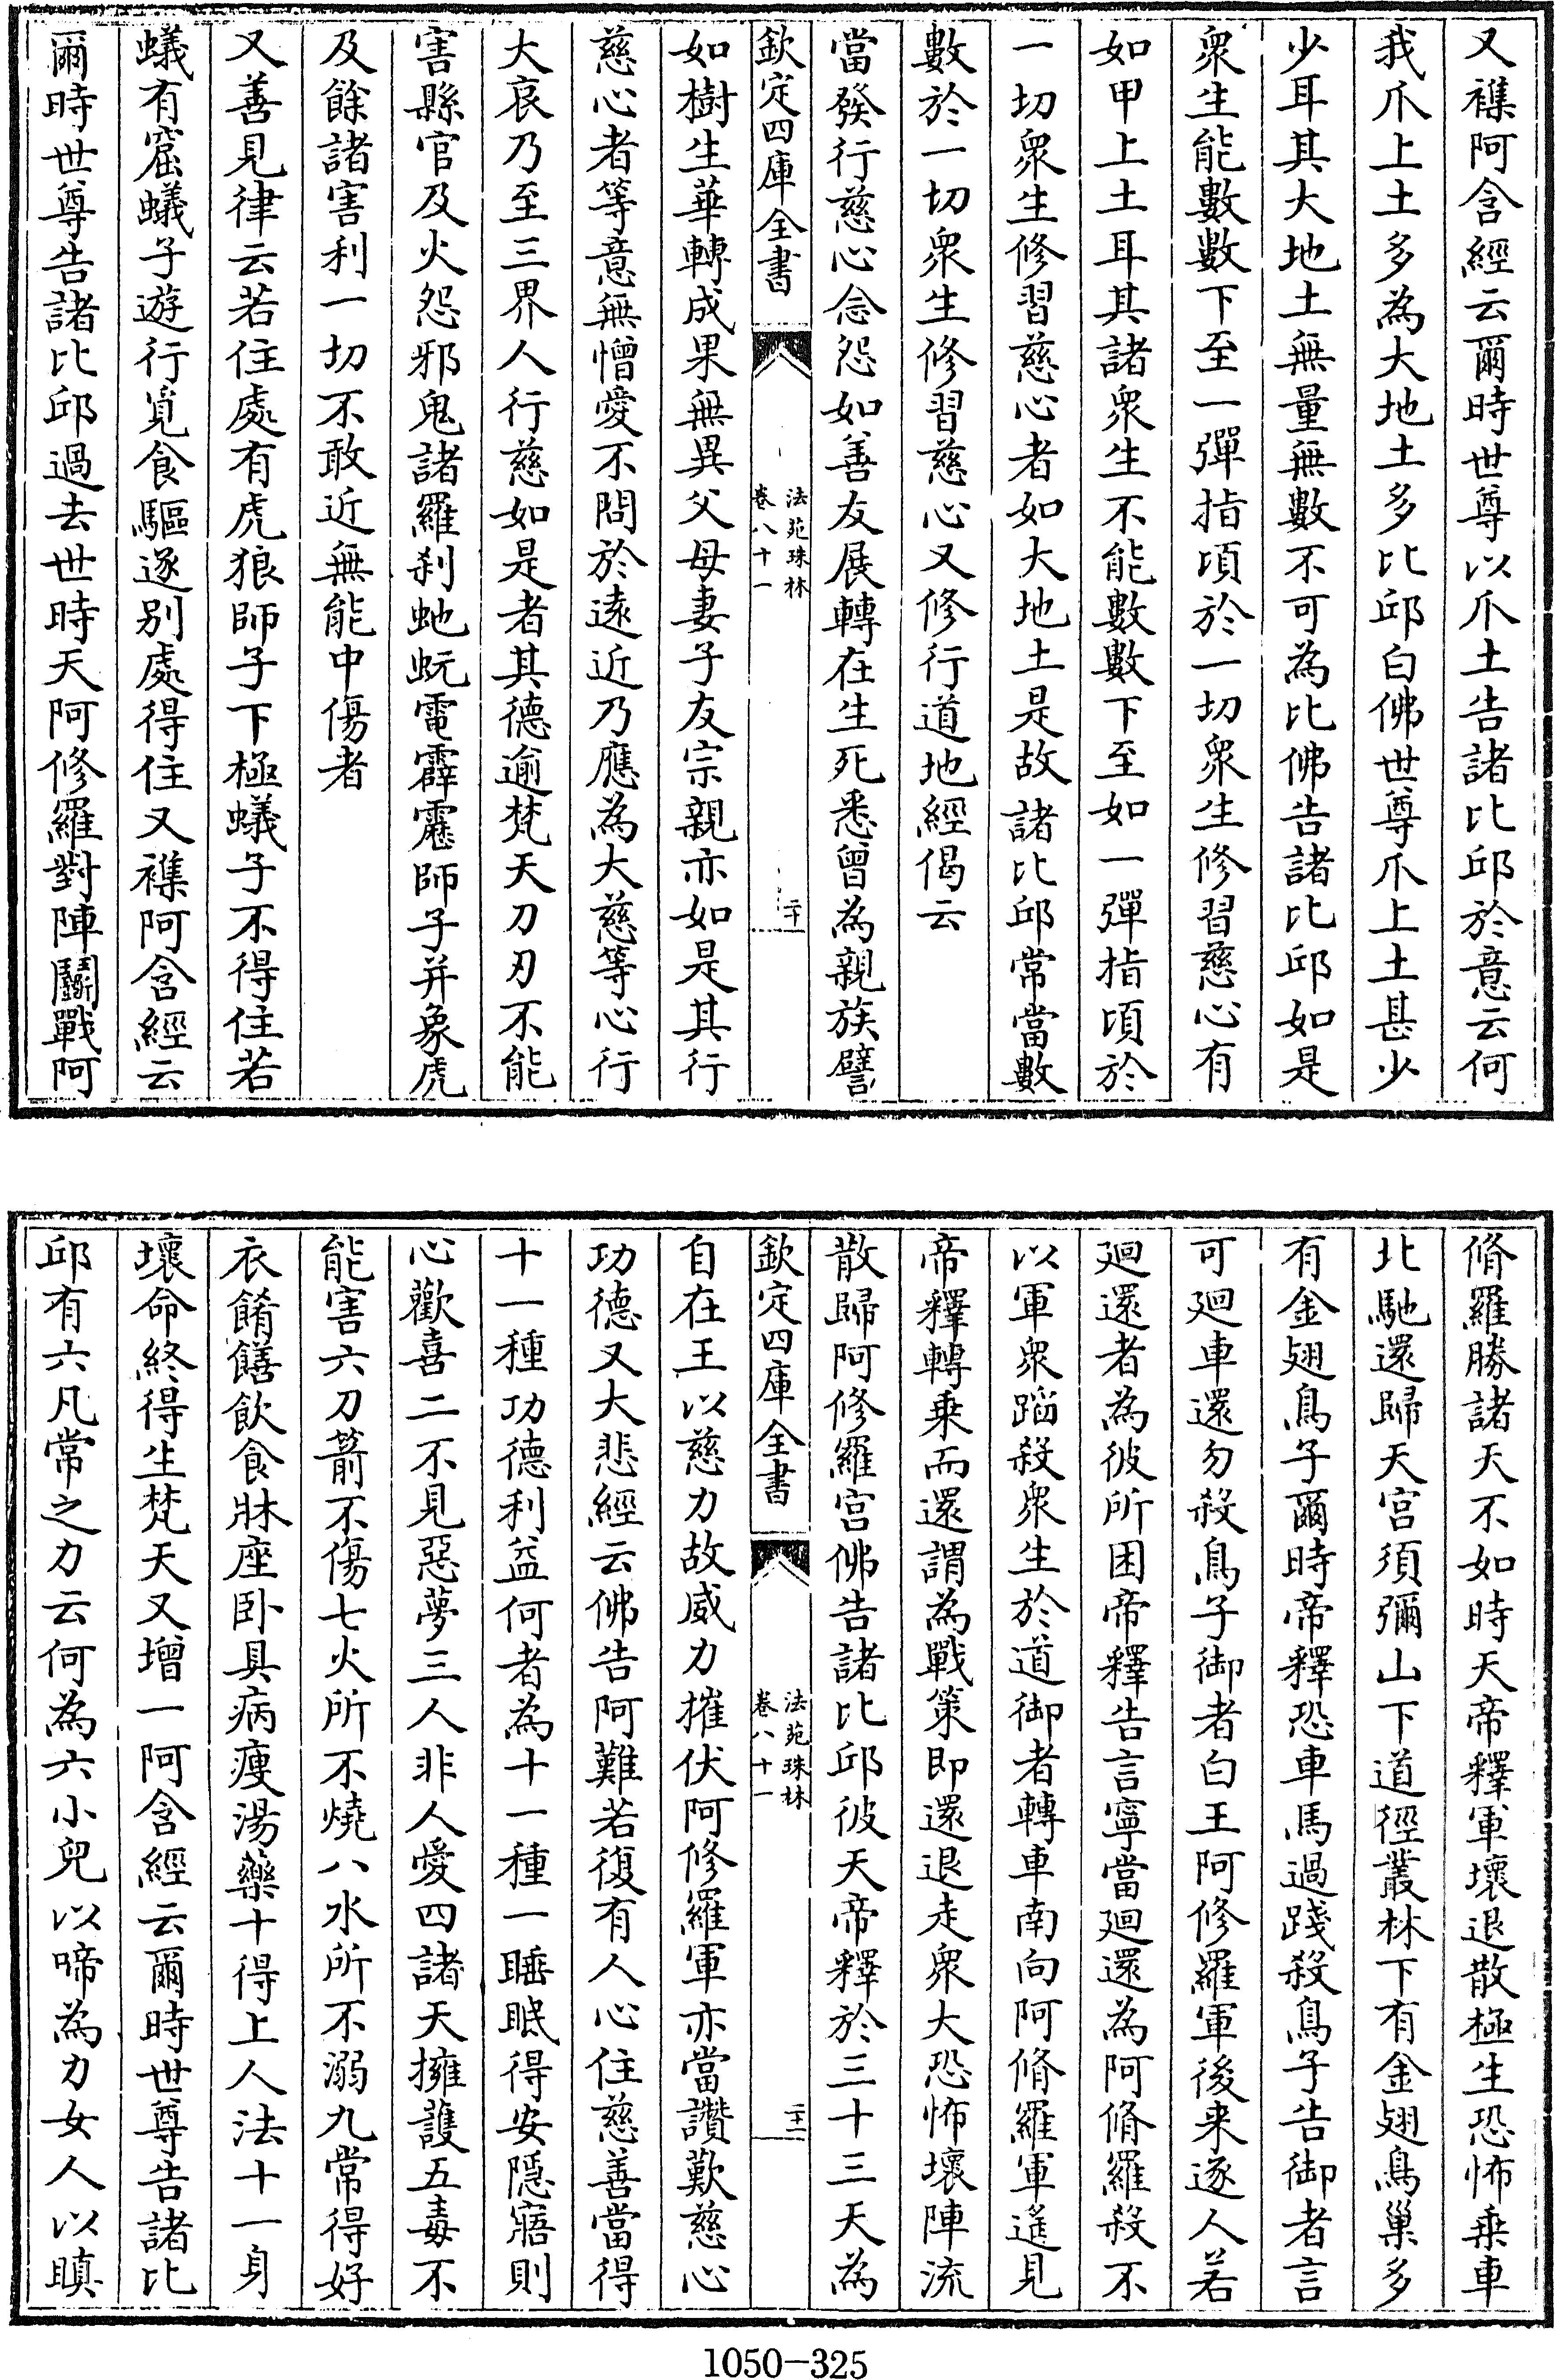 又襍阿含經云爾時世尊以爪土告諸比邱於意云何
我爪上土多為大地土多比邱白佛世尊爪上土甚少
少耳其大地土無量無數不可為比佛告諸比邱如是
衆生能數數下至一彈指頃於一切衆生修習慈心有
如甲上土耳其諸衆生不能數數下至如一彈指頃於
一切衆生修習慈心者如大地土是故諸比邱常當數
數於一切衆生修習慈心又修行道地經偈云
當發行慈心念怨如善友展轉在生死悉曾為親族譬
欽定四庫全書
法苑珠林
卷八十一
二十
如樹生華轉成果無異父母妻子友宗親亦如是其行
慈心者等意無憎愛不問於遠近乃應為大慈等心行
大哀乃至三界人行慈如是者其德逾梵天刀刃不能
害縣官及火怨邪鬼諸羅刹虵蚖電霹靂師子并象虎
及餘諸害利一切不敢近無能中傷者
又善見律云若住處有虎狼師子下極蟻子不得住若
蟻有窟蟻子遊行覓食驅逐別處得住又襍阿含經云
爾時世尊告諸比邱過去世時天阿修羅對陣鬭戰阿
脩羅勝諸天不如時天帝釋軍壞退散極生恐怖乗車
北馳還歸天宫須彌山下道徑叢林下有金翅鳥巢多
有金翅鳥子爾時帝釋恐車馬過踐殺鳥子告御者言
可廻車還勿殺鳥子御者白王阿修羅軍後来逐人若
廻還者為彼所困帝釋告言寧當廻還為阿脩羅殺不
以軍衆蹈殺衆生於道御者轉車南向阿脩羅軍遙見
帝釋轉乗而還謂為戰策即還退走衆大恐怖壞陣流
散歸阿修羅宫佛告諸比邱彼天帝釋於三十三天為
欽定四庫全書
法苑珠林
卷八十一
二十一
自在王以慈力故威力摧伏阿修羅軍亦當讚歎慈心
功德又大悲經云佛告阿難若復有人心住慈善當得
十一種功德利益何者為十一種一睡眠得安隱寤則
心歡喜二不見惡夢三人非人愛四諸天擁護五毒不
能害六刀箭不傷七火所不燒八水所不溺九常得好
衣餚饍飲食牀座卧具病瘦湯藥十得上人法十一身
壞命終得生梵天又增一阿含經云爾時世尊告諸比
邱有六凡常之力云何為六小兒以啼為力女人以瞋
1050-325